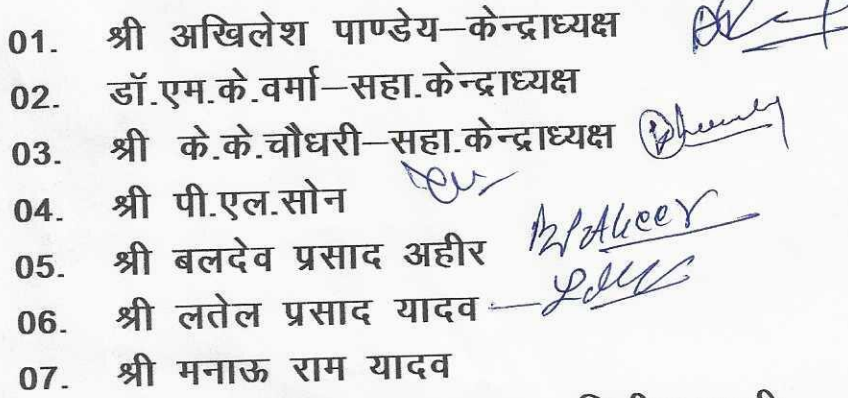 01. श्री अखिलेश पाण्डेय–केन्द्राध्यक्ष
02. डॉ.एम.के.वर्मा–सहा.केन्द्राध्यक्ष
03. श्री के.के.चौधरी–सहा.केन्द्राध्यक्ष
04. श्री पी.एल.सोन
05. श्री बलदेव प्रसाद अहीर BPAheer
06. श्री लतेल प्रसाद यादव
07. श्री मनाऊ राम यादव